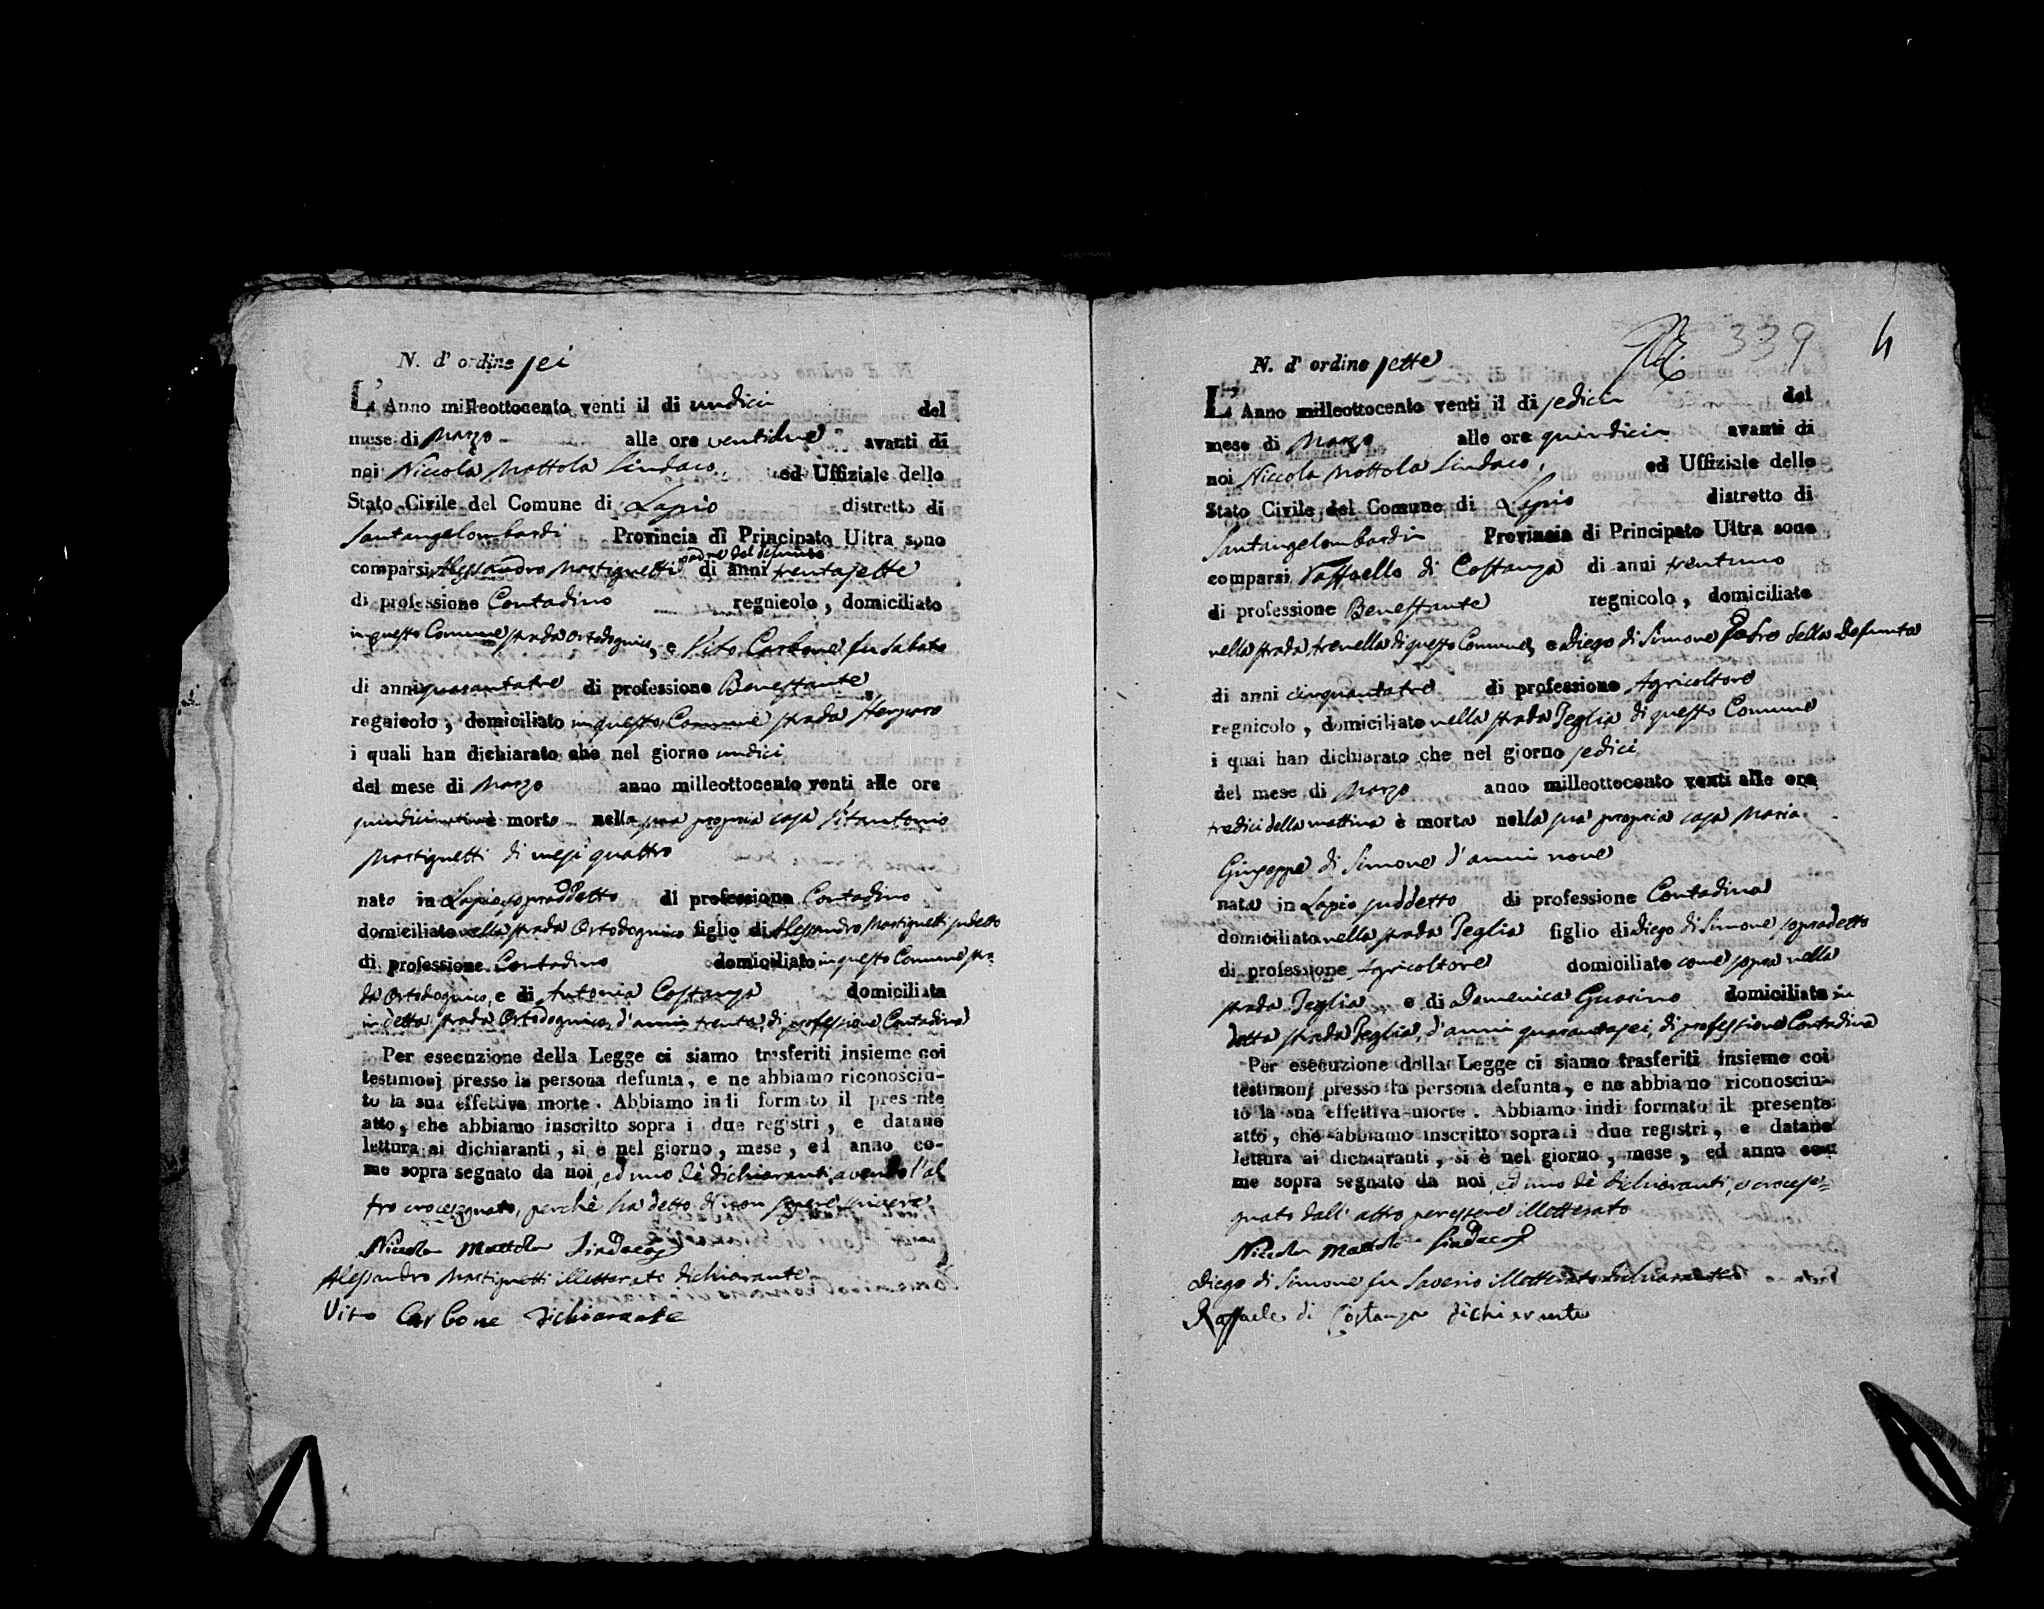 N. d' ordine sei
L' Anno milleottocento venti il di undici del
mese di Marzo alle ore ventidue avanti di
noi Niccola Mottola Sindaco, ed Uffiziale dello
Stato Civile del Comune di Lapio distretto di
Santangelombardi Provincia di Principato Ultra sono
padre del defunto
comparsi Alessandro Mastignetti di anni trentasette
di professione Contadino regnicolo, domiciliato
in questo Comune strada Ortodognico, e Vito Carbone fu Sabato
di anni quarantatre di professione Benestante
regnicolo, domiciliato in questo Comune strada
i quali han dichiarato che nel giorno undici
del mese di Marzo anno milleottocento venti alle ore
quindici è morto nella sua propria casa Vitantonio
Mastignetti di mesi quattro
nato in Lapio sopraddetto di professione Contadino
domiciliato nella strada Ortodognico figlio di Alessandro Mastignetti sudetto
di professione Contadino domiciliato in questo Comune stra-
da Ortodognico, e di Antonia Costanza domiciliata
in detta strada Ortodognico, d'anni trenta, di professione Contadina
Per esecuzione della Legge ci siamo trasferiti insieme coi
testimonj presso la persona defunta, e ne abbiamo riconosciu-
to la sua effettiva morte. Abbiamo indi formato il presente
atto, che abbiamo inscritto sopra i due registri, e datane
lettura ai dichiaranti, si è nel giorno, mese, ed anno co-
me sopra segnato da noi, ed uno dè dichiaranti, avendo l'al
tro crocesegnato, perchè ha detto di non sapere scrivere.
Niccola Mottola Sindaco
Alessandro Mastignetti illetterato dichiarante
Vito Carbone dichiarante
339
4
N. d' ordine sette
L' Anno milleottocento venti il di sedici del
mese di Marzo alle ore quindici avanti di
noi Niccola Mottola Sindaco, ed Uffiziale dello
Stato Civile del Comune di Lapio distretto di
Santangelombardi Provincia di Principato Ultra sono
comparsi Raffaello di Costanza di anni trentuno
di professione Benestante regnicolo, domiciliato
nella strada di questo Comune, e Diego di Simone Padre della Defunta
di anni cinquantatre di professione Agricoltore
regnicolo, domiciliato nella strada Teglia di questo Comune
i quai han dichiarato che nel giorno sedici
del mese di Marzo anno milleottocento venti alle ore
tredici della mattina è morta nella sua propria casa Maria
Giuseppa di Simone d'anni nove
nata in Lapio suddetto di professione Contadina
domiciliata nella strada Teglia figlio di Diego di Simone sopradetto
di professione Agricoltore domiciliato come sopra nella
strada Teglia e di Domenica Guarino domiciliata in
detta strada Teglia, d'anni quarantasei, di professione Contadina
Per esecuzione della Legge ci siamo trasferiti insieme coi
testimonj presso la persona defunta, e ne abbiamo riconosciu-
to la sua effettiva morte. Abbiamo indi formato il presente
atto, che abbiamo inscritto sopra i due registri, e datane
lettura ai dichiaranti, si è nel giorno, mese, ed anno co-
me sopra segnato da noi, ed uno dè dichiaranti, e crocese=
gnato dall' altro per essere illetterato
Niccola Mottola Sindaco
Diego di Simone fu Saverio illetterato dichiarante
Raffaele di Costanza dichiarante